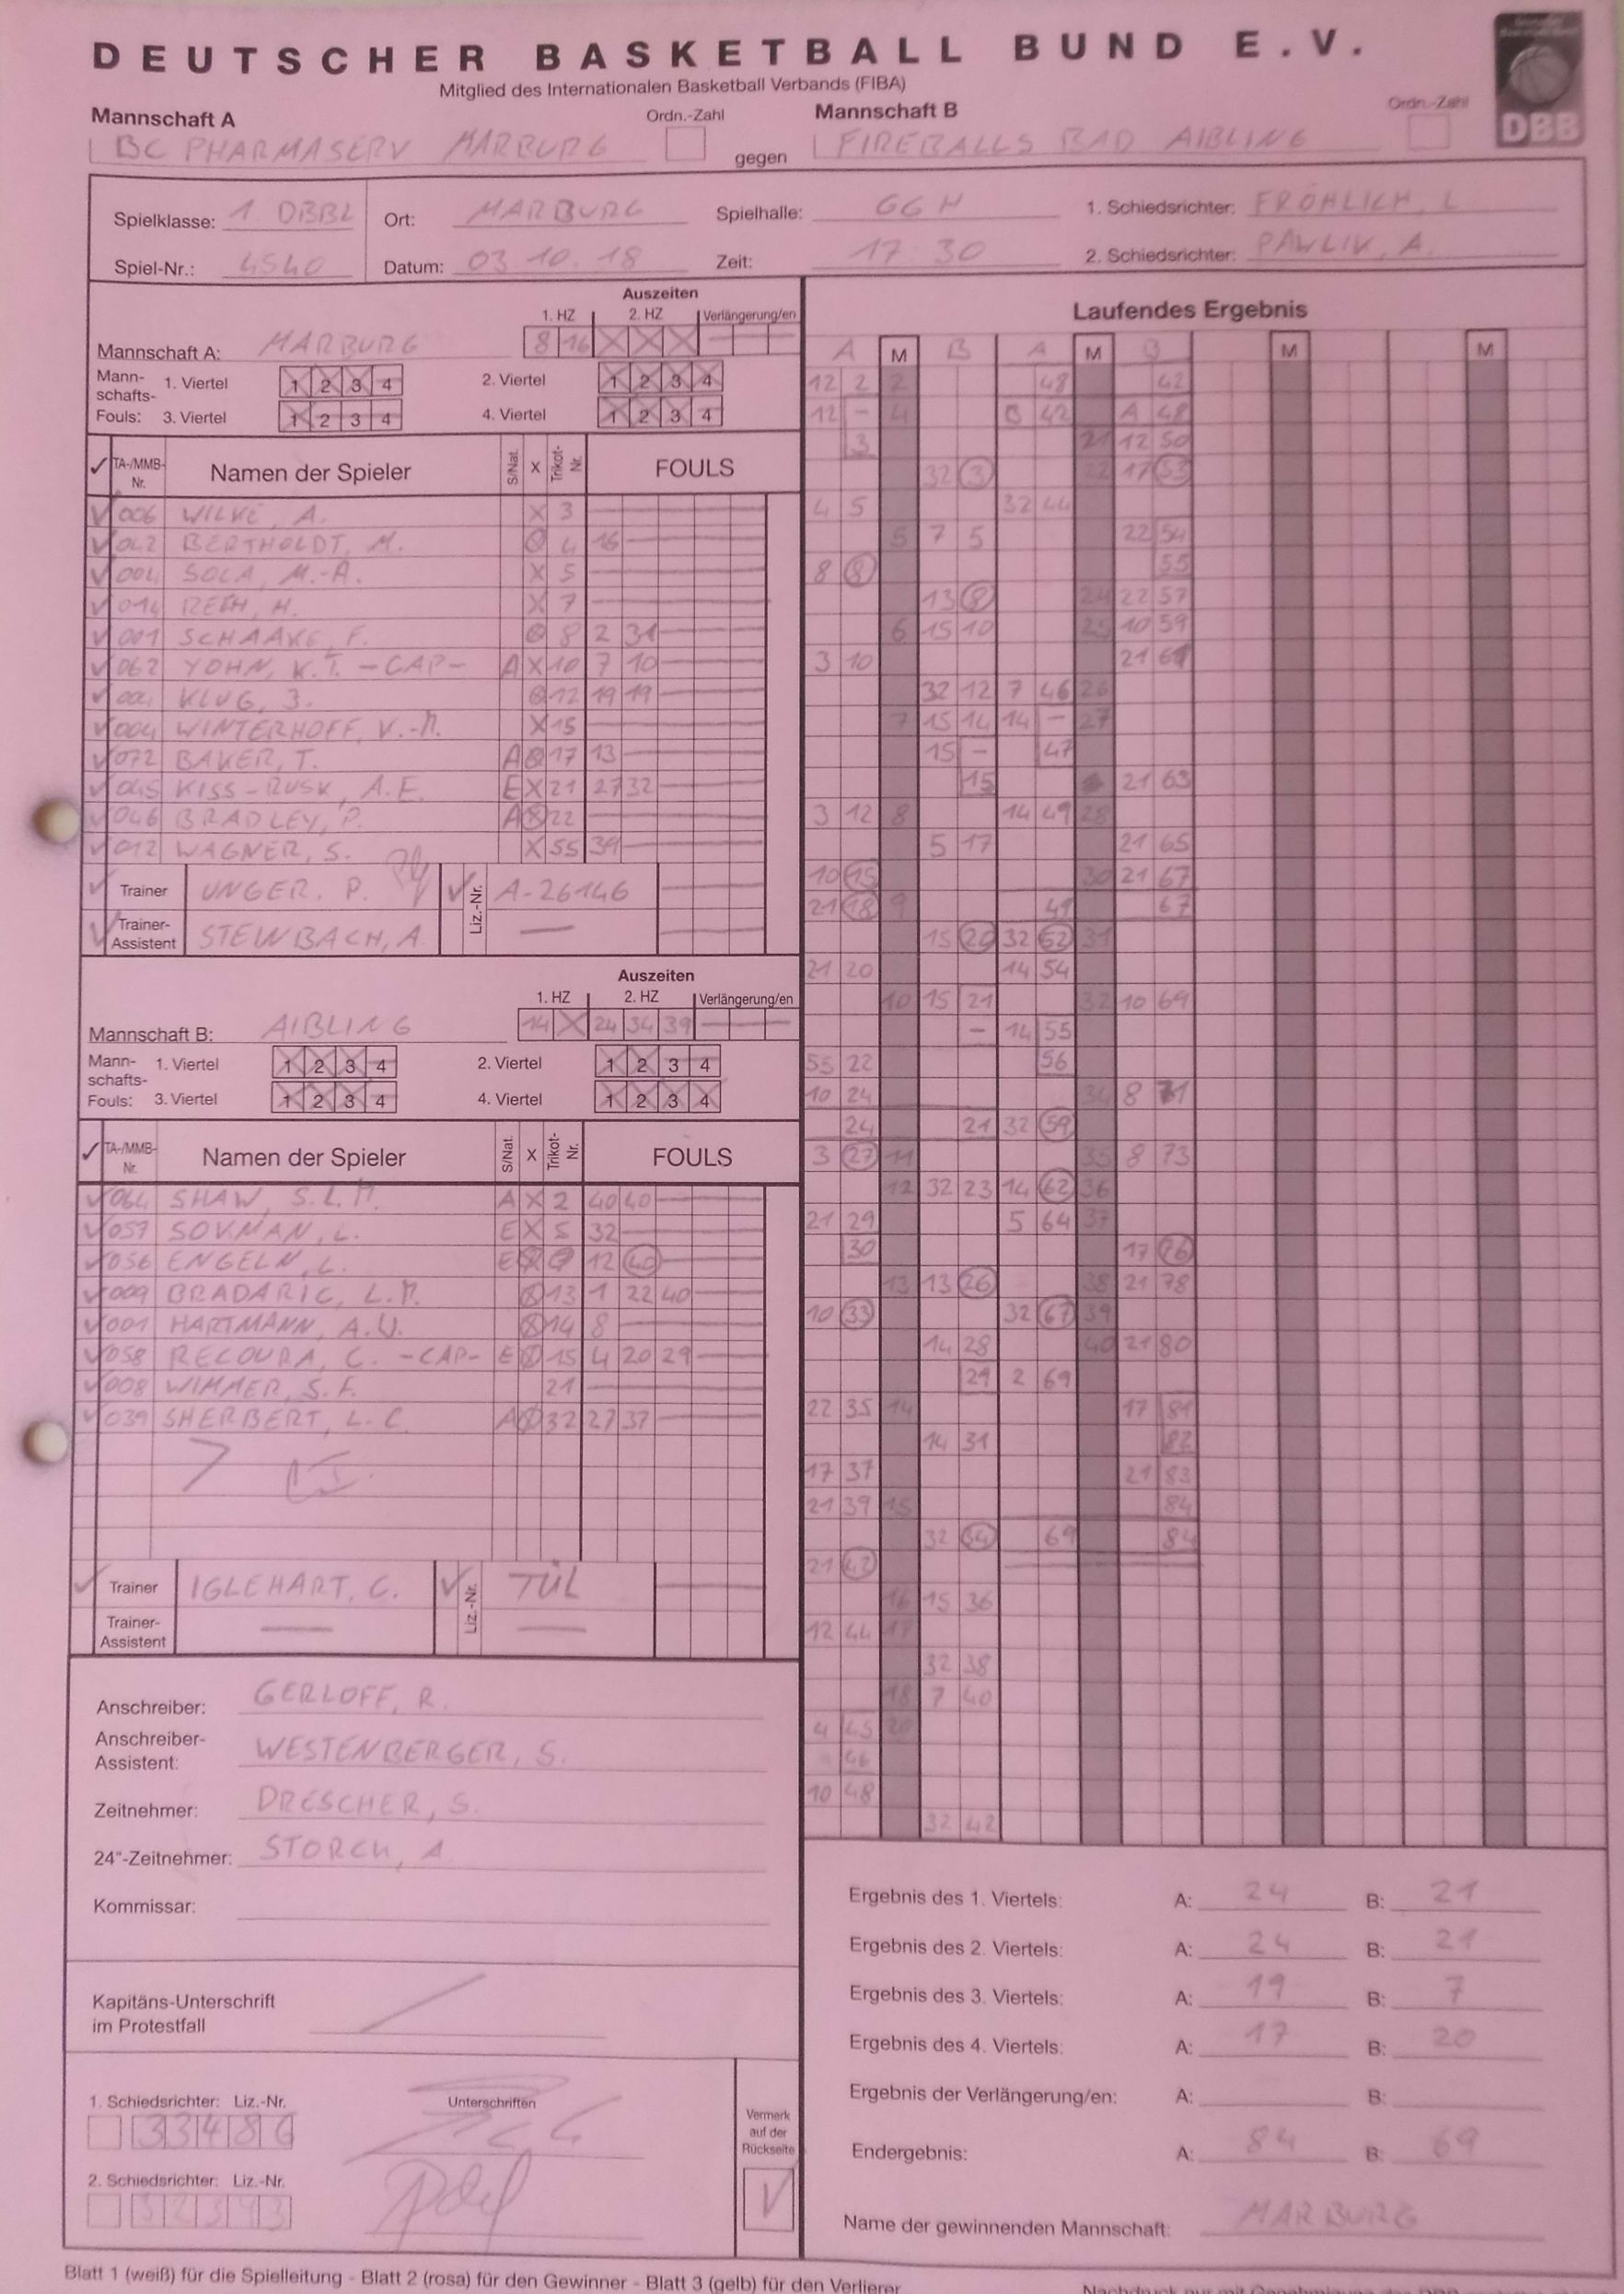 DEUTSCHER BASKETBALL BUND E.V.
Mitglied des Internationalen Basketball Verbands (FIBA)
DBB
Mannschaft A Ordn.-Zahl Mannschaft B Ordn.-Zahl
BC PHARMASERV MARBURG gegen FIREBALLS BAD AIBLING
Spielklasse: 1. DBBL Ort: MARBURG Spielhalle: GGH 1. Schiedsrichter: FRÖHLICH, L
Spiel-Nr.: 4540 Datum: 03.10.18 Zeit: 17:30 2. Schiedsrichter: PAWLIK, A.
Auszeiten
1. HZ 2. HZ Verlängerung/en
Mannschaft A: MARBURG 8 16 X X X
Mann-schafts-Fouls: 1. Viertel 1 2 3 4 2. Viertel 1 2 3 4
3. Viertel 1 2 3 4 4. Viertel 1 2 3 4
TA-/MMB-Nr. Namen der Spieler S/Nat. X Trikot-Nr. FOULS
006 WILKE, A. X 3
042 BERTHOLDT, M. X 4 16
004 SOLA, M.-A. X 5
014 RETH, H. X 7
001 SCHAAKE, F. X 8 2 31
062 YOHN, K.T. -CAP- A X 10 7 10
KLUG, J. X 12 19 19
004 WINTERHOFF, V.-M. X 15
072 BAKER, T. A X 17 13
045 KISS-RUSK, A.E. E X 21 27 32
046 BRADLEY, P. A X 22
012 WAGNER, S. X 55 39
Trainer UNGER. P. Liz.-Nr. A-26146
Trainer-Assistent STEINBACH, A. —
Auszeiten
1. HZ 2. HZ Verlängerung/en
Mannschaft B: AIBLING 14 X 24 34 39
Mann-schafts-Fouls: 1. Viertel 1 2 3 4 2. Viertel 1 2 3 4
3. Viertel 1 2 3 4 4. Viertel 1 2 3 4
TA-/MMB-Nr. Namen der Spieler S/Nat. X Trikot-Nr. FOULS
064 SHAW, S.L.M. A X 2 40 40
057 SOKMAN, L. E X 5 32
056 ENGELN, L. E X 7 12 40
009 BRADARIC, L.M. X 13 1 22 40
001 HARTMANN, A.U. X 14 8
058 RECOURA, C. -CAP- E X 15 4 20 29
008 WIMMER, S.F. 21
039 SHERBERT, L.C. A X 32 27 37
Trainer IGLEHART, C. Liz.-Nr. TÜL
Trainer-Assistent — —
Anschreiber: GERLOFF, R.
Anschreiber-Assistent: WESTENBERGER, S.
Zeitnehmer: DRESCHER, S.
24"-Zeitnehmer: STORCH, A
Kommissar:
Kapitäns-Unterschrift
im Protestfall
1. Schiedsrichter: Liz.-Nr. Unterschriften
33486
2. Schiedsrichter: Liz.-Nr.
Vermerk
auf der
Rückseite
Laufendes Ergebnis
A M B A M B M M
12 2 2 48 42
12 - 4 B 42 A 48
3 21 12 50
32 3 22 17 53
4 5 32 44
5 7 5 22 54
8 8 55
13 8 24 22 57
6 15 10 25 10 59
3 10 21 61
32 12 7 46 26
7 15 14 14 - 27
15 - 47
15 21 63
3 12 8 14 49 28
5 17 21 65
10 15 30 21 67
21 18 9 49 67
15 20 32 52 31
21 20 14 54
10 15 21 32 10 69
- 14 55
55 22 56
10 24 34 8 71
24 21 32 59
3 27 11 35 8 73
12 32 23 14 62 36
21 29 5 64 37
30 17 76
13 13 26 38 21 78
10 33 32 67 39
14 28 40 21 80
29 2 69
22 35 14 17 81
14 31 82
17 37 21 83
21 39 15 84
32 34 69 84
21 42
16 15 36
12 44 17
32 38
18 7 40
4 45 20
46
10 48
32 42
Ergebnis des 1. Viertels: A: 24 B: 21
Ergebnis des 2. Viertels: A: 24 B: 21
Ergebnis des 3. Viertels: A: 19 B: 7
Ergebnis des 4. Viertels: A: 17 B: 20
Ergebnis der Verlängerung/en: A: B:
Endergebnis: A: 84 B: 69
Name der gewinnenden Mannschaft: MARBURG
Blatt 1 (weiß) für die Spielleitung - Blatt 2 (rosa) für den Gewinner - Blatt 3 (gelb) für den Verlierer